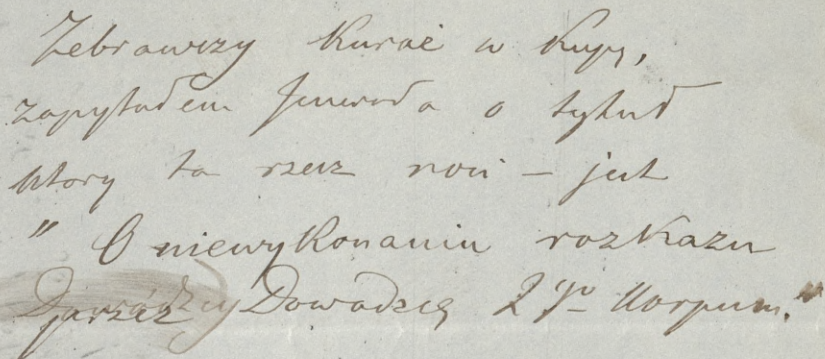 Zebrawszy Kurać w Kupę,
zapytałem Jenerała o tytuł
który ta rzecz nosi – jest
" O niewykonaniu rozkazu
przez Dowódzcę 2go Korpusu."